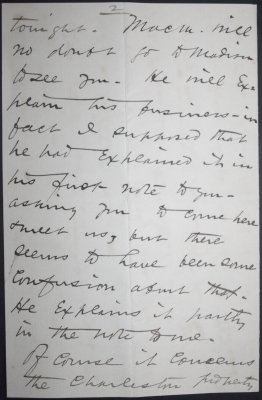 2
tonight. MacM. will
no doubt go to Madison
to see you. He will Ex-
plain his business - in
fact I supposed that
he had Explained it in
his first note to you -
asking you to come here
& meet us, but there
seems to have been some
Confusion about that.
He Explains it partly
in the note to me.
Of Course it Concerns
the Charleston property